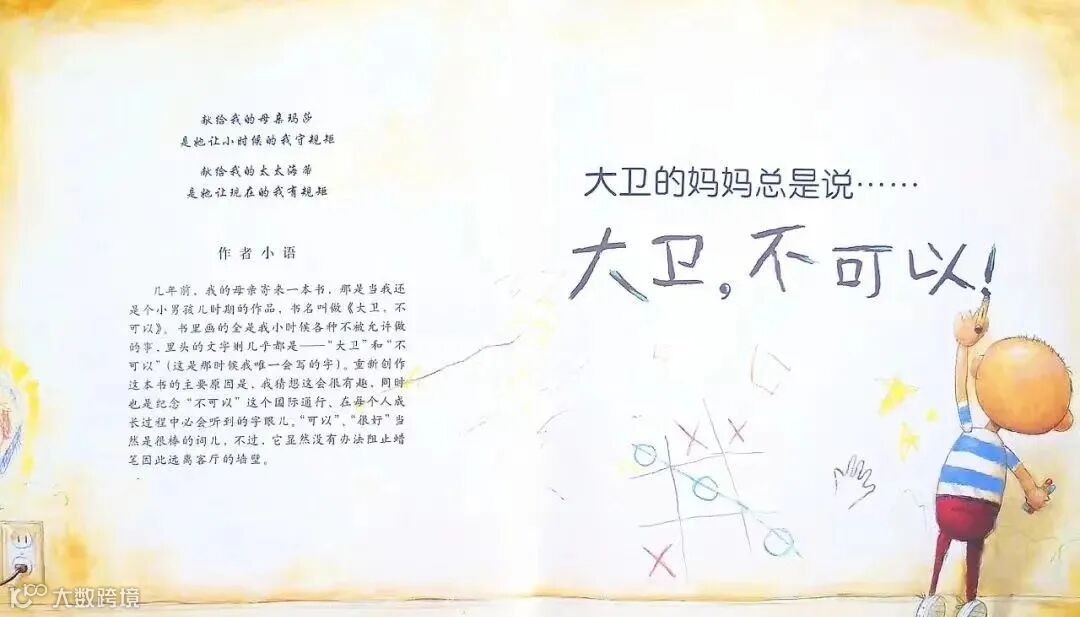 献给我的母亲玛莎
是她让小时候的我守规矩
献给我的太太海蒂
是她让现在的我有规矩
作者小语
几年前，我的母亲寄来一本书，那是当我还
是个小男孩儿时期的作品，书名叫做《大卫，不
可以》。书里画的全是我小时候各种不被允许做
的事，里头的文字则几乎都是——“大卫”和“不
可以”（这是那时候我唯一会写的字）。重新创作
这本书的主要原因是，我猜想这会很有趣，同时
也是纪念“不可以”这个国际通行、在每个人成
长过程中必会听到的字眼儿。“可以”、“很好”当
然是很棒的词儿，不过，它显然没有办法阻止蜡
笔因此远离客厅的墙壁。
大卫的妈妈总是说……
大卫，不可以！
大数跨境